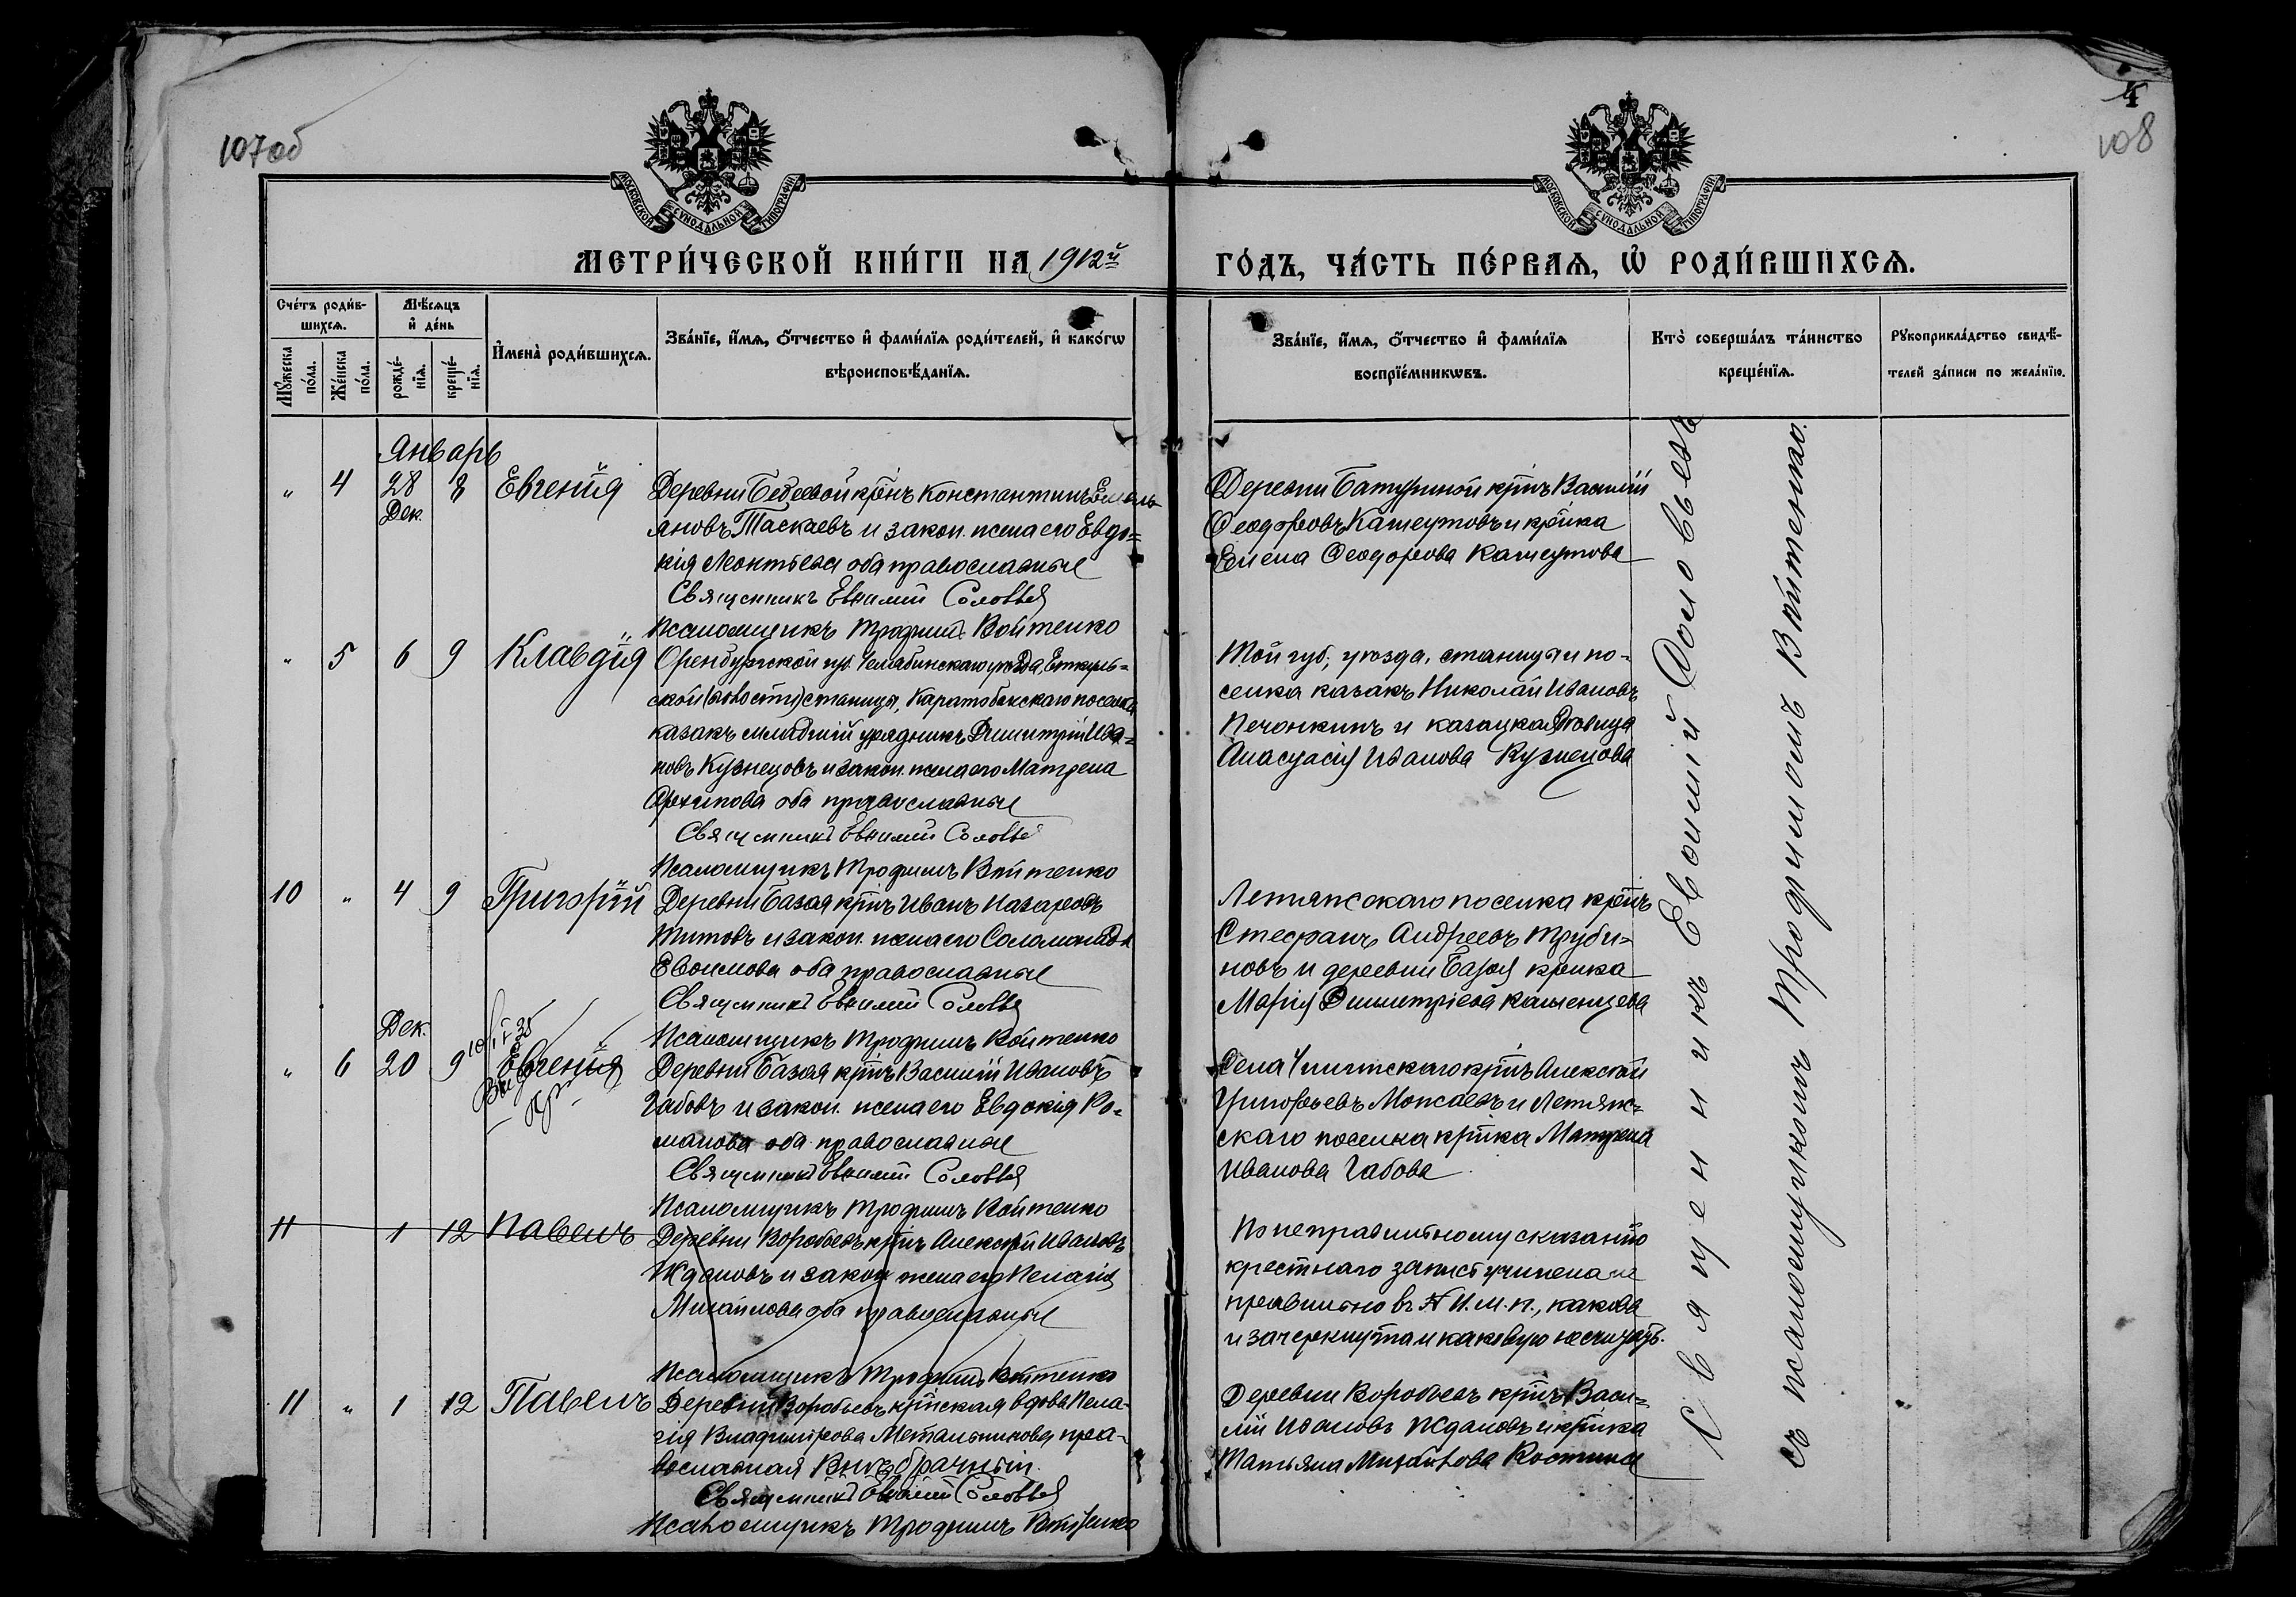 107об
4
108
МОСКОВСКОЙ СѴНОДАЛЬНОЙ ТИПОГРАФІИ
МОСКОВСКОЙ СѴНОДАЛЬНОЙ ТИПОГРАФІИ
МЕТРИ́ЧЕСКОЙ КНИ́ГИ НА 1912й
ГО́ДЪ, ЧА́СТЬ ПЕ́РВАЯ, Ѡ РОДИ́ВШИХСЯ.
Сче́тъ роди́в-
шихся.
Мѣ́сяцъ
и҆ де́нь
Мꙋ́жеска
по́ла.
Же́нска
по́ла.
рожде́-
нїя.
креще́-
нїя.
И҆мена̀ роди́вшихся.
Зва́нїе, и҆́мя, ѻ҆́тчество и҆ фами́лїя роди́телей, и҆ како́гѡ
вѣроисповѣ́данїя.
Зва́нїе, и҆́мя, ѻ҆́тчество и҆ фами́лїя
воспрїе́мникѡвъ.
Кто̀ соверша́лъ та́инство
креще́нїя.
Рꙋкоприкла́дство свидѣ́-
телей за́писи по жела́нїю.
Январь
" 4 28 8 Евгенія
Дек.
Деревни Бедеевой крінъ Константинъ Емель
яновъ Таскаевъ и закон. жена его Евдо=
кія Леонтьева оба православные
Священникъ Евѳимій Соловьев
Псаломщикъ Трофимъ Войтенко
Деревни Батуриной крінъ Василій
Ѳеодоровъ Кашеутовъ и крінка
Елена Ѳеодорова Кашеутова
" 5 6 9 Клавдія
Оренбургской губ. Челябинскаго уезда, Еткуль=
ской станицы, Каратабанскаго поселка
казакъ младшій урядникъ Димитрій Ива=
новъ Кузнецовъ и закон. жена его Матрена
Архипова оба православные
Священникъ Евѳимій Соловьев
Псаломщикъ Трофимъ Войтенко
Той губ., уезда, станицы и по-
селка казакъ Николай Ивановъ
Печонкинъ и казацкая девица
Анастасія Иванова Кузнецова
10 " 4 9 Григорій
Деревни Базая крінъ Иванъ Назаровъ
Титовъ и закон. жена его Соломонида
Евѳимова оба православные
Священникъ Евѳимій Соловьев
Псаломщикъ Трофимъ Войтенко
Летяжскаго поселка крінъ
Стефанъ Андреевъ Труби=
новъ и деревни Базая крінка
Марія Димитріева Каменцева
Дек.
" 6 20 9 Евгенія
Деревни Базая крінъ Василій Ивановъ
Габовъ и закон. жена его Евдокія Ро=
манова оба православные
Священникъ Евѳимій Соловьев
Псаломщикъ Трофимъ Войтенко
крінъ Алексѣй
Григорьевъ Можаевъ и Летяж=
скаго поселка крінка Матрена
Иванова Габова
11 1 12 Павелъ
Деревни Воробьевъ крінъ Алексѣй Ивановъ
Ждановъ и закон жена его Пелагія
Михайлова оба православные
Псаломщикъ Трофимъ Войтенко
По неправильному сказанію
крестнаго запись учинена не
правильно въ И.м.п., какова
и зачеркнута и каковую не считать.
11 " 1 12 Павелъ
Деревни Воробьевъ крінская вдова Пела-
гія Владимірова Метальникова пра-
вославная Внебрачный.
Священникъ Евѳимій Соловьев
Псаломщикъ Трофимъ Войтенко
Деревни Воробьевъ крінъ Васи=
лій Ивановъ Ждановъ и крінка
Татьяна Михайлова Костина
Священникъ Евѳимій Соловьевъ
съ псаломщикомъ Трофимомъ Войтенко.